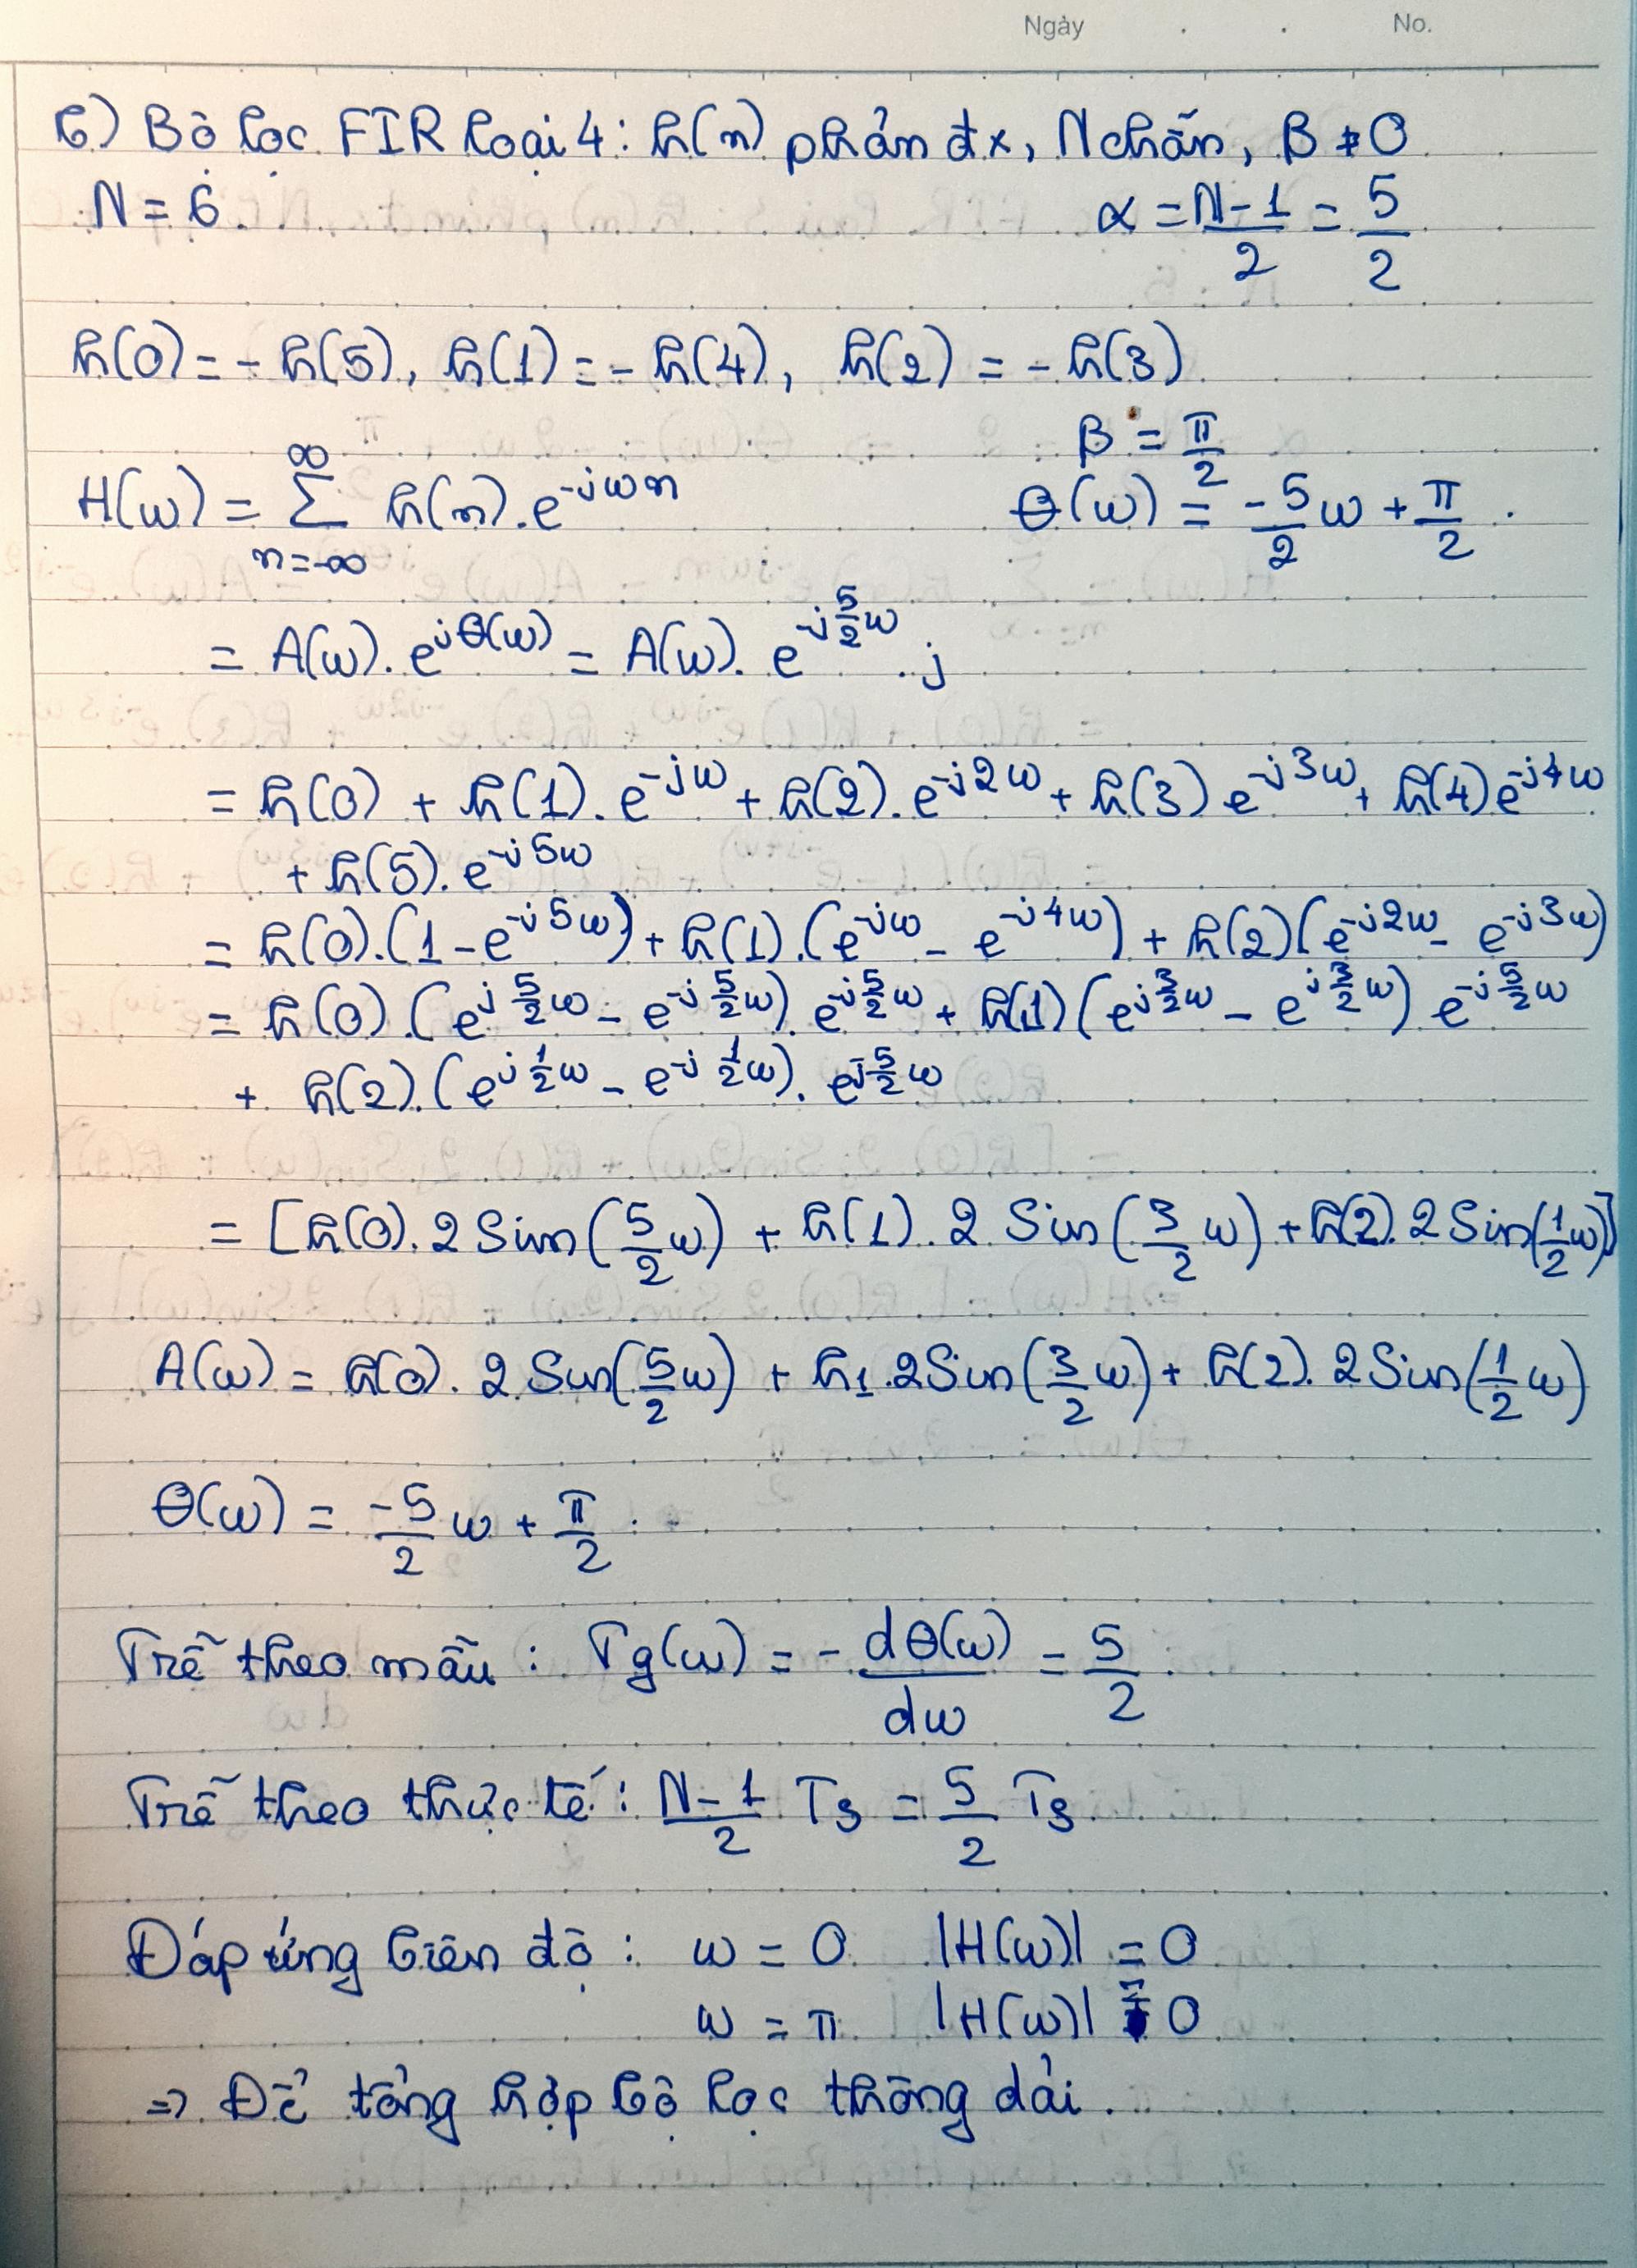 Ngày . . No.
b) Bộ lọc FIR loại 4: h(n) phản đx, N chẵn, β ≠ 0
N = 6 α = (N-1)/2 = 5/2
h(0) = - h(5), h(1) = - h(4), h(2) = - h(3)
β = π/2
H(ω) = Σ_{n=-∞}^{∞} h(n).e^{-jωn} θ(ω) = -5/2 ω + π/2
= A(ω).e^{jθ(ω)} = A(ω).e^{-j5/2ω}.j
= h(0) + h(1).e^{-jω} + h(2).e^{-j2ω} + h(3)e^{-j3ω} + h(4)e^{-j4ω}
+ h(5).e^{-j5ω}
= h(0).(1-e^{-j5ω}) + h(1).(e^{-jω} - e^{-j4ω}) + h(2)(e^{-j2ω} - e^{-j3ω})
= h(0).(e^{j5/2ω} - e^{-j5/2ω}).e^{-j5/2ω} + h(1)(e^{j3/2ω} - e^{j3/2ω})e^{-j5/2ω}
+ h(2).(e^{j1/2ω} - e^{-j1/2ω}).e^{j-5/2ω}
= [h(0).2Sin(5/2 ω) + h(1).2Sin(3/2 ω) + h(2).2Sin(1/2 ω)]
A(ω) = h(0).2Sin(5/2 ω) + h1.2Sin(3/2 ω) + h(2).2Sin(1/2 ω)
θ(ω) = -5/2 ω + π/2
Trễ theo mẫu : Tg(ω) = - dθ(ω)/dω = 5/2
Trễ theo thực tế : (N-1)/2 Ts = 5/2 Ts
Đáp ứng biên độ : ω = 0 |H(ω)| = 0
ω = π |H(ω)| 0
=> Để tổng hợp bộ lọc thông dải.